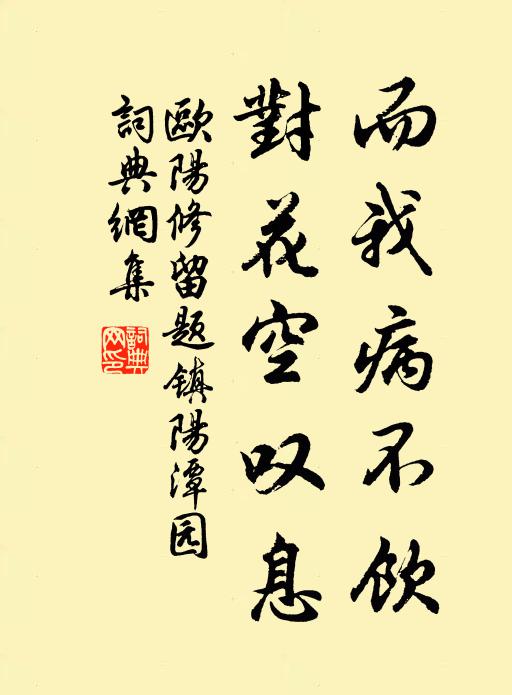 而我病不飲
對花空叹息
歐陽修留題鎮陽潭园
詞典網集
詞典网印